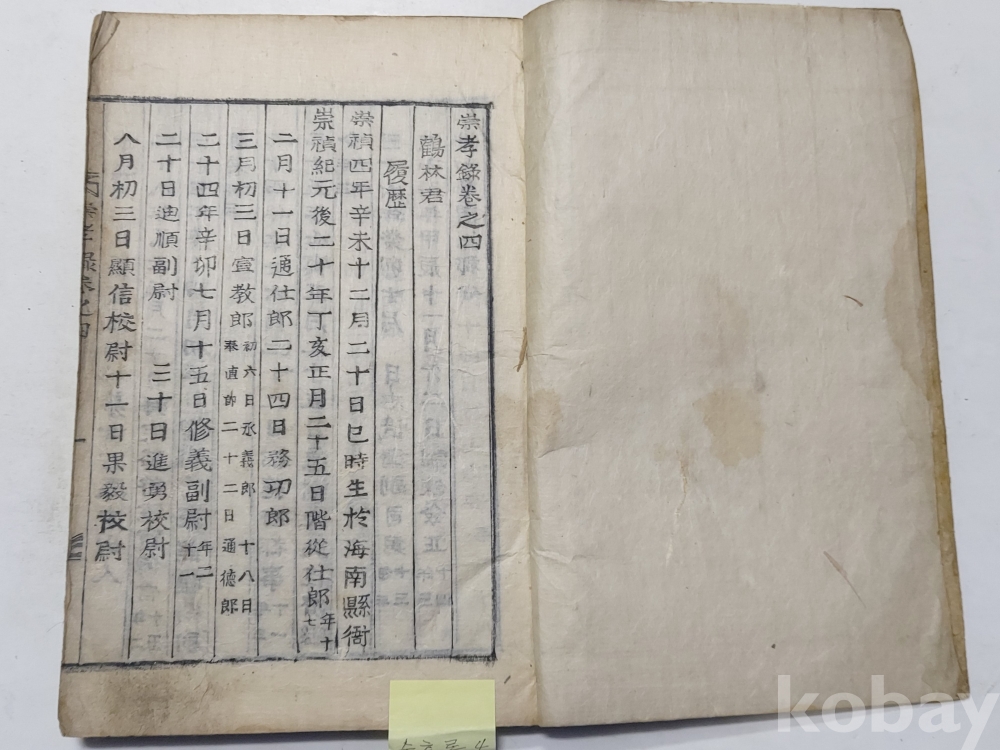 崇孝錄卷之四
鶴林君
履歷
崇禎四年辛未十二月二十日巳時生於海南縣衙
崇禎紀元後二十年丁亥正月二十五日階從仕郎年十七
二月十一日通仕郎二十四日務功郎
三月初三日宣教郎初六日承義郎十八日奉直郎二十二日通德郎
二十四年辛卯七月十五日修義副尉年二十一
二十日迪順副尉 三十日進勇校尉
八月初三日顯信校尉十一日果毅校尉
崇孝錄卷之四
一
숭효록 4
kobay